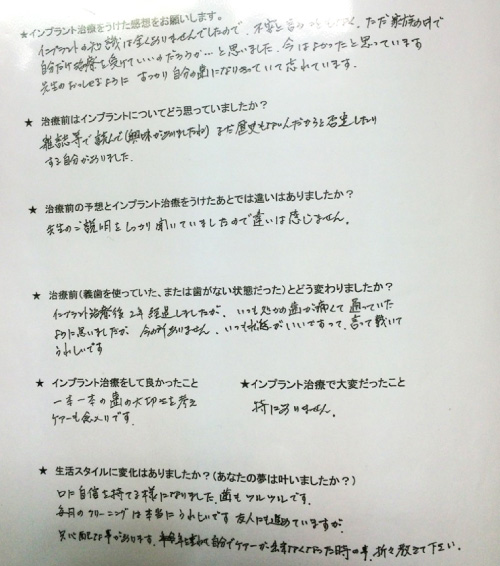 ★インプラント治療をうけた感想をお願いします。
インプラントの知識は全くありませんでしたので、不安と言う ただ家族の中で
自分だけ治療を受けていいのだろうか…と思いました。今はよかったと思っています
先生のおっしゃるように すっかり自分の歯になりきっていて忘れています。
★ 治療前はインプラントについてどう思っていましたか？
雑誌等で読んで(興味がありましたね)まだ歴史もないんだからと否定したり
する自分がありました。
★ 治療前の予想とインプラント治療をうけたあとでは違いはありましたか？
先生のご説明をしっかり聞いていましたので違いは感じません。
★ 治療前(義歯を使っていた、または歯がない状態だった)とどう変わりましたか？
インプラント治療後2年経過しましたが、いつも処かの歯が痛くて通っていた
ように思いましたが 今の所ありません、いつも状態がいいですって、言って戴いて
うれしいです
★ インプラント治療をして良かったこと
一本一本の歯の大切さを考え
ケアーも念入りです。
★インプラント治療で大変だったこと
特にありません。
★ 生活スタイルに変化はありましたか？(あなたの夢は叶いましたか？)
口に自信を持てる様になりました。歯もツルツルです。
毎月のクリーニングは本当にうれしいです 友人にも進めていますが
只心配な事があります。 自分でケアーが出来なくなった時の事、折々教えて下さい。